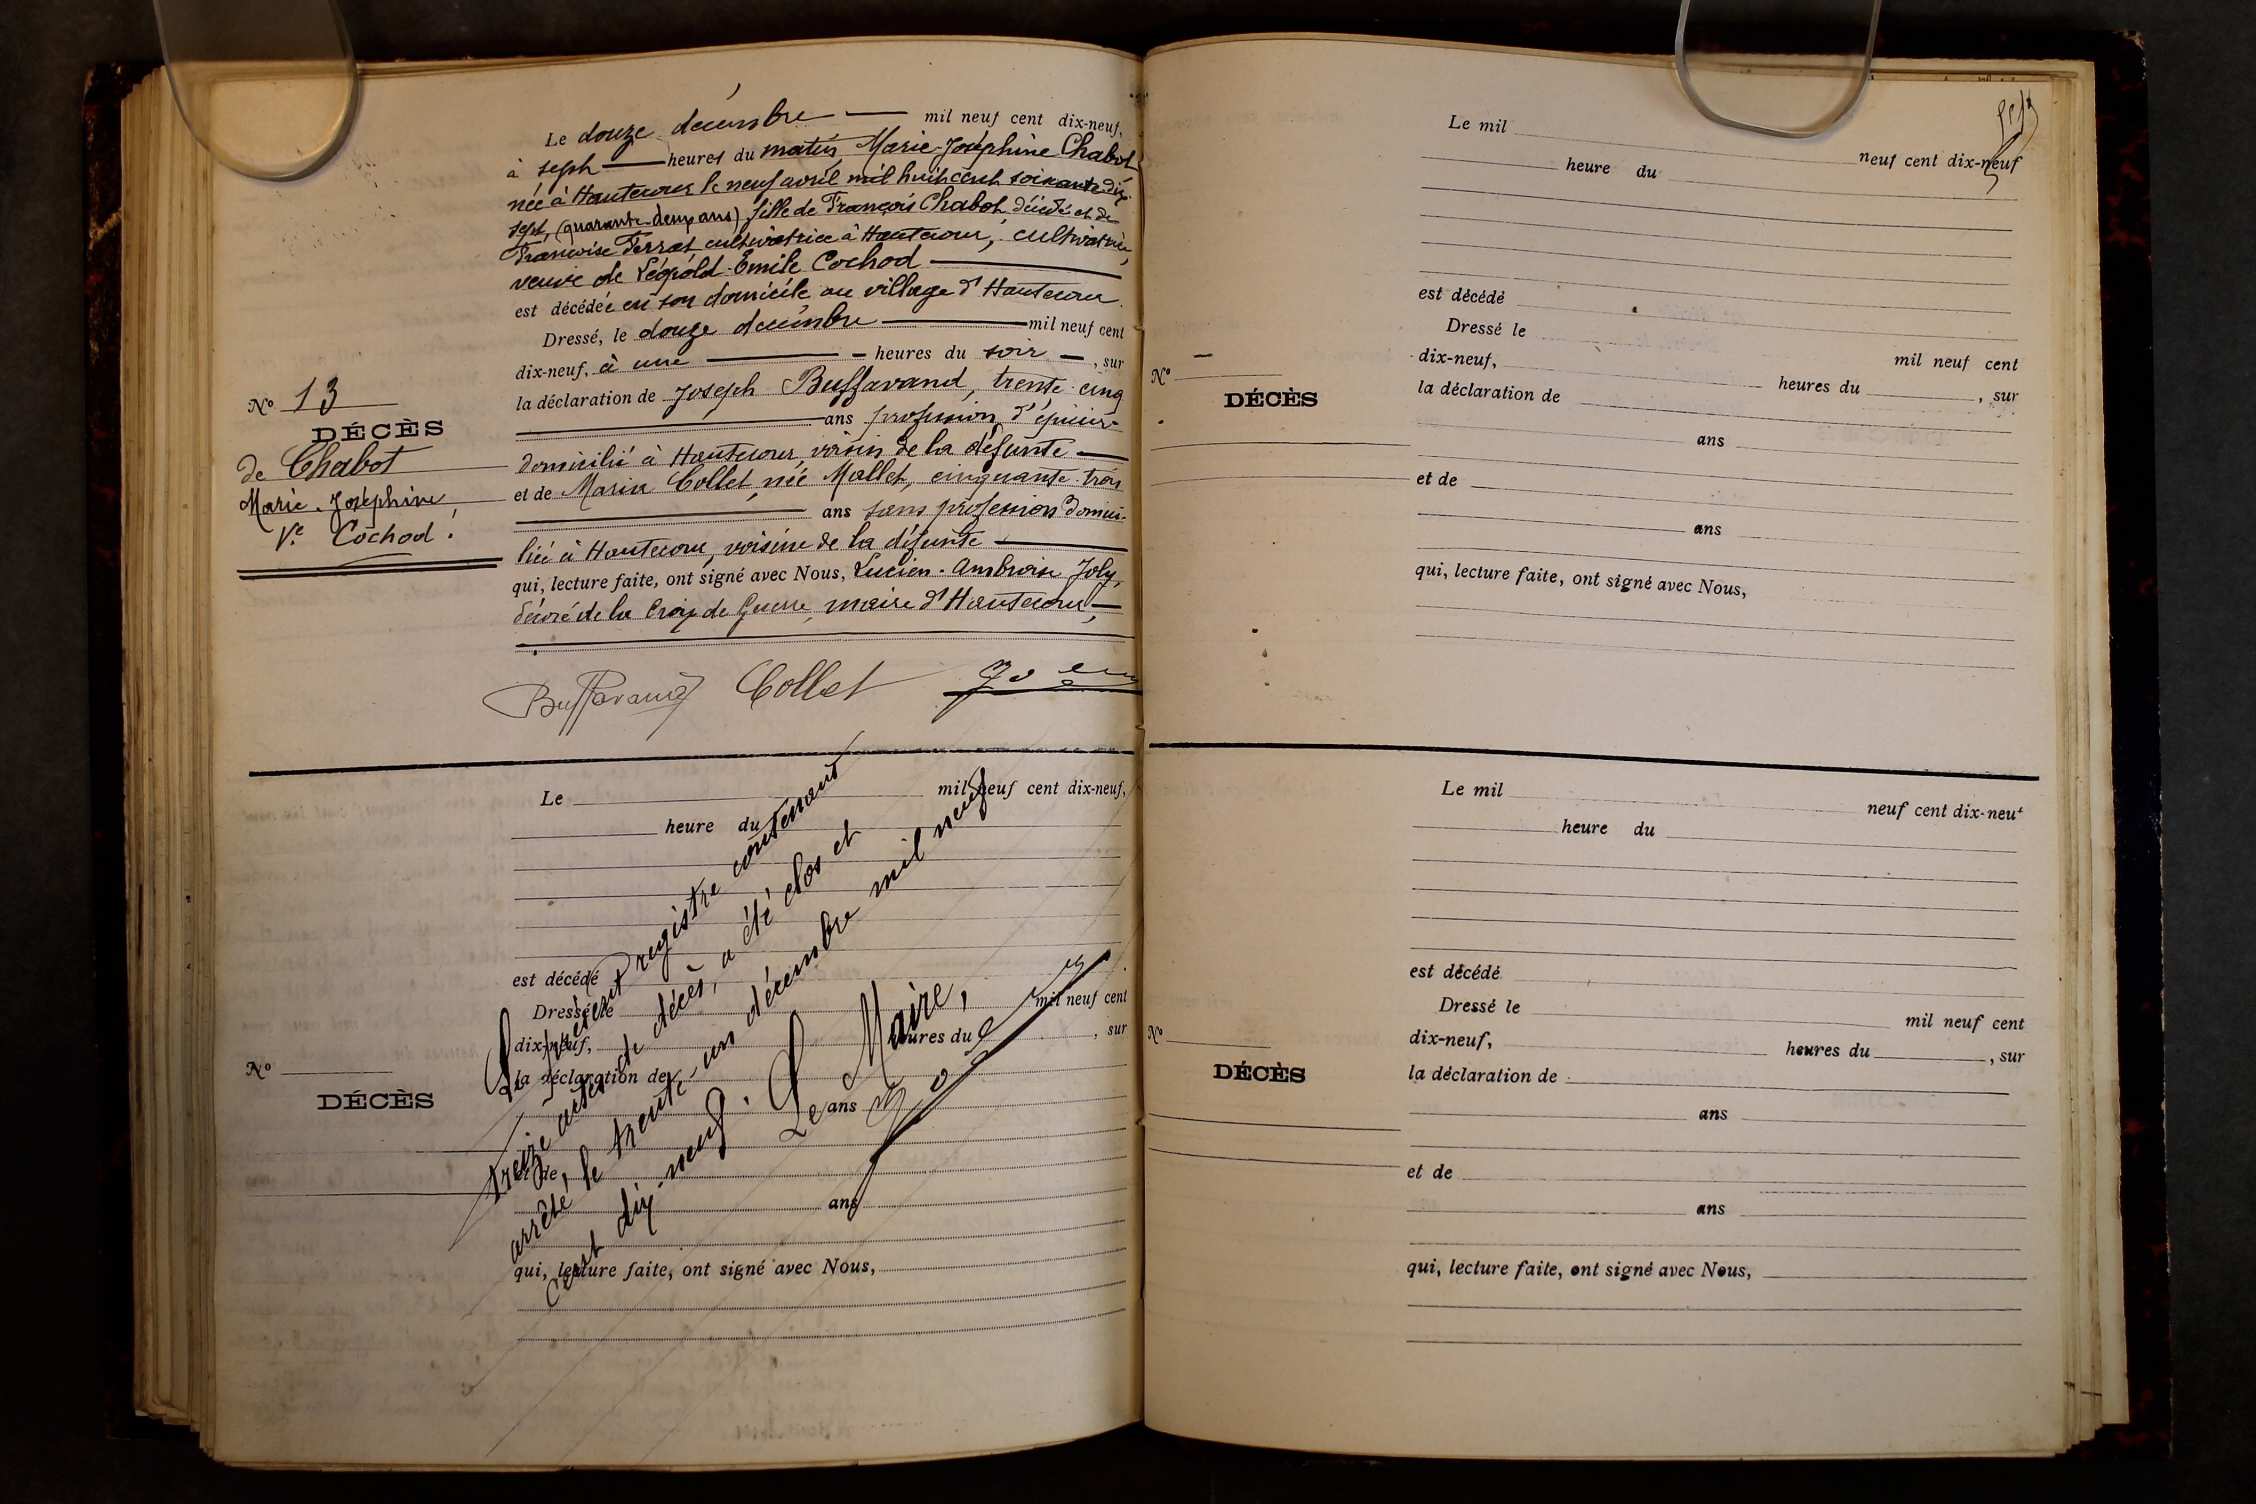 Le douze décembre — mil neuf cent dix-neuf,
à sept — heures du matin, Marie-Joséphine Chabot
née à Hautecour le neuf avril mil huit cent soixante dix-
sept, (quarante-deux ans) fille de François Chabot, décédé et de
Françoise Ferrat cultivatrice à Hautecour, cultivatrice,
veuve de Léopold-Emile Cochod —
est décédée en son domicile au village d'Hautecour
Dressé, le douze décembre — mil neuf cent
dix-neuf, à une — heures du soir —, sur
la déclaration de Joseph Buffavand, trente-cinq
— ans profession d'épicier
domicilié à Hautecour, voisin de la défunte —
et de Marie Collet, née Mallet, cinquante-trois
— ans sans profession domici-
liée à Hautecour, voisine de la défunte —
qui, lecture faite, ont signé avec Nous, Lucien-Ambroise Joly,
décoré de la Croix de Guerre, maire d'Hautecour, —
Buffavand Collet
No 13
DÉCÈS
de Chabot
Marie-Joséphine,
Ve Cochod.
Le mil neuf cent dix-neuf,
heure du
est décédé
Dressé le mil neuf cent
dix-neuf, heures du , sur
la déclaration de
ans
et de
ans
qui, lecture faite, ont signé avec Nous,
No
DÉCÈS
Le présent registre contenant
treize actes de décès, a été clos et
arrêté, le trente-un décembre mil neuf
cent dix-neuf.
Le Maire,
Le mil neuf cent dix-neuf
heure du
est décédé
Dressé le mil neuf cent
dix-neuf, heures du , sur
la déclaration de
ans
et de
ans
qui, lecture faite, ont signé avec Nous,
No
DÉCÈS
Le mil neuf cent dix-neuf
heure du
est décédé
Dressé le mil neuf cent
dix-neuf, heures du , sur
la déclaration de
ans
et de
ans
qui, lecture faite, ont signé avec Nous,
No
DÉCÈS